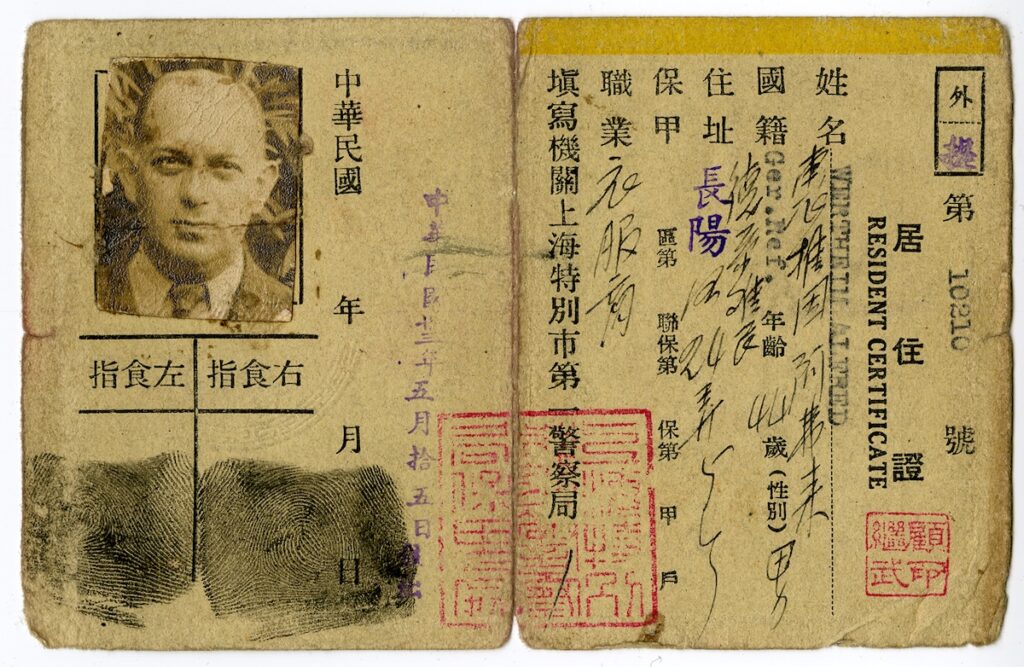 外
第 10210 號
居住證
RESIDENT CERTIFICATE
姓名
WERTHEIM ALFRED
國籍
Ger.Ref.
年齡 44 歲 (性別) 男
住址
長陽
24弄
保甲 區第 聯保第 保第 甲 戶
職業 衣服商
填寫機關上海特別市第一警察局
顧繼武印
中華民國 年 月 日
中華民國卅三年五月拾五日
右食指
左食指